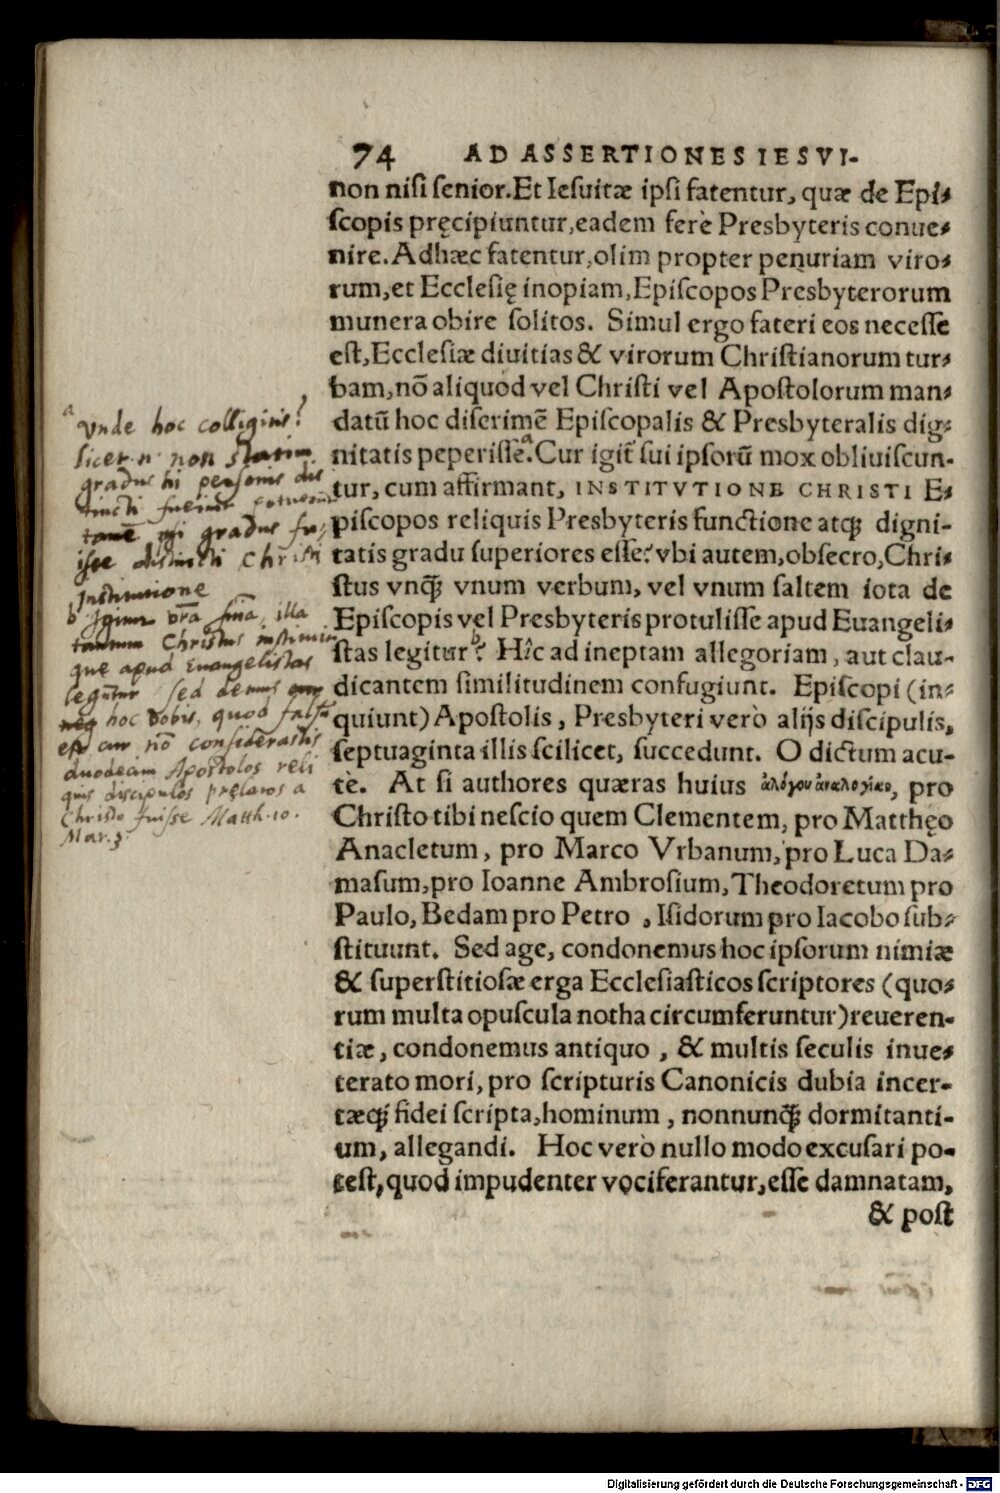 74 AD ASSERTIONES IESVI-
non nisi senior. Et Iesuitæ ipsi fatentur, quæ de Epi-
scopis pręcipiuntur, eadem ferè Presbyteris conue-
nire. Adhæc fatentur, olim propter penuriam viro-
rum, et Ecclesię inopiam, Episcopos Presbyterorum
munera obire solitos. Simul ergo fateri eos necesse
est, Ecclesiæ diuitias & virorum Christianorum tur-
bam, nō aliquod vel Christi vel Apostolorum man-
datū hoc discrimē Episcopalis & Presbyteralis dig-
nitatis peperisse.ᵃ Cur igit̃ sui ipsorū mox obliuiscun-
tur, cum affirmant, INSTITVTIONE CHRISTI E-
piscopos reliquis Presbyteris functione atq; digni-
tatis gradu superiores esse? vbi autem, obsecro, Chri-
stus vnq̃; vnum verbum, vel vnum saltem iota de
Episcopis vel Presbyteris protulisse apud Euangeli-
stas legitur?ᵇ Hîc ad ineptam allegoriam, aut clau-
dicantem similitudinem confugiunt. Episcopi (in-
quiunt) Apostolis, Presbyteri verò alijs discipulis,
septuaginta illis scilicet, succedunt. O dictum acu-
tè. At si authores quæras huius ἀλόγου ἀναλογίας, pro
Christo tibi nescio quem Clementem, pro Matthęo
Anacletum, pro Marco Vrbanum, pro Luca Da-
masum, pro Ioanne Ambrosium, Theodoretum pro
Paulo, Bedam pro Petro, Isidorum pro Iacobo sub-
stituunt. Sed age, condonemus hoc ipsorum nimiæ
& superstitiosæ erga Ecclesiasticos scriptores (quo-
rum multa opuscula notha circumferuntur) reueren-
tiæ, condonemus antiquo, & multis seculis inue-
terato mori, pro scripturis Canonicis dubia incer-
tæq; fidei scripta, hominum, nonnunq̃; dormitanti-
um, allegandi. Hoc verò nullo modo excusari po-
test, quod impudenter vociferantur, esse damnatam,
& post
a Vnde hoc colligitis?
licet n. non statim
gradus hi personis dis
tincti fuerint
tamē gradus fu-
isse distincti Christi
Institutione
b Igitur vr̃a illa
tantum Christus instituit
que apud Euangelistas
legūtur sed demus
hoc vobis, quod falsū
est an nō considerastis
duodecim Apostolos reli
quis discipulos pręlatos a
Christo fuisse Matth. 10.
Mar. 3
Digitalisierung gefördert durch die Deutsche Forschungsgemeinschaft - DFG